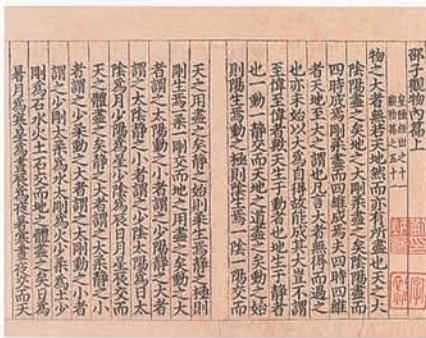 邵子觀物內篇上
物之大者無若天地然而亦有所盡也天之大
陰陽盡之矣地之大剛柔盡之矣陰陽盡而
四時成焉剛柔盡而四維成焉夫四時四維
者天地至大之謂也凡言大者無得而過之
也亦未始以大為自得故能成其大豈不謂
至偉至偉者歟天生于動者也地生于靜者
也一動一靜交而天地之道盡之矣動之始
則陽生焉動之極則陰生焉一陰一陽交而
天之用盡之矣靜之始則柔生焉靜之極則
剛生焉一柔一剛交而地之用盡之矣動之大
者謂之太陽動之小者謂之少陽靜之大者
謂之太陰靜之小者謂之少陰太陽為日太
陰為月少陽為星少陰為辰日月星辰交而
天之體盡之矣靜之大者謂之太柔靜之小
者謂之少柔動之大者謂之太剛動之小者
謂之少剛太柔為水太剛為火少柔為土少
剛為石水火土石交而地之體盡之矣日為
暑月為寒星為晝辰為夜暑寒晝夜交而天